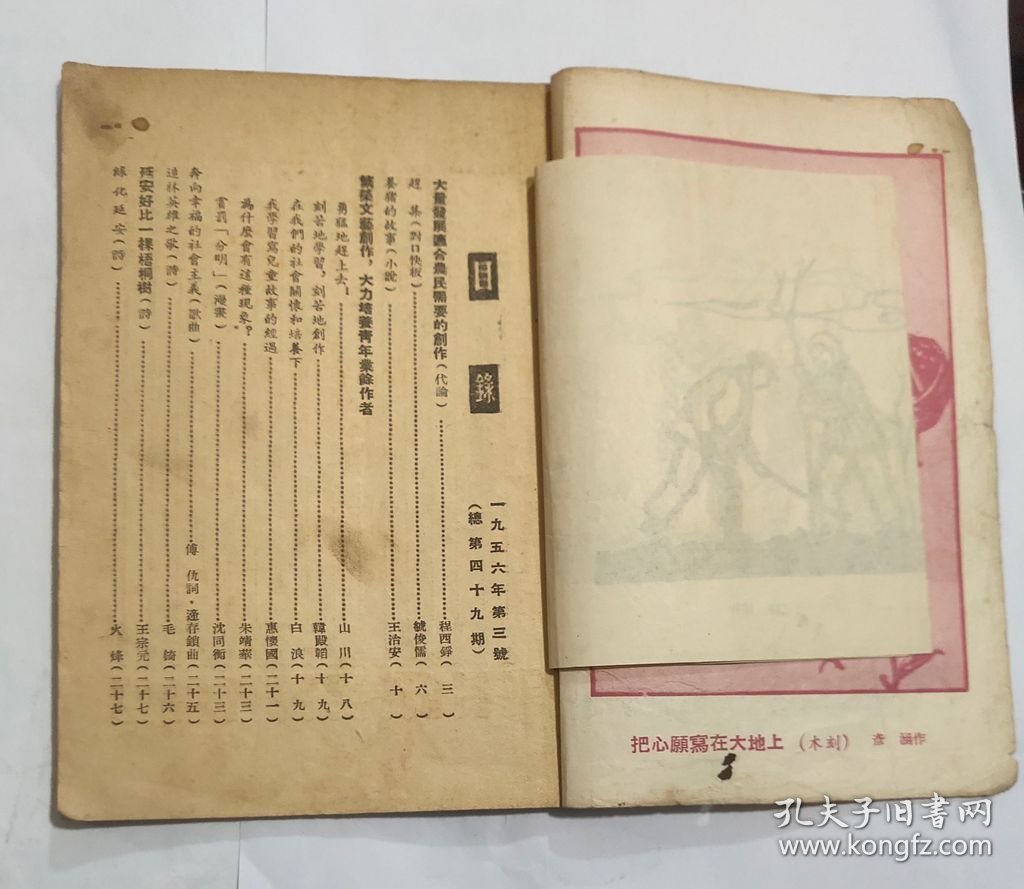 目錄
一九五六年第三號
(總第四十九期)
大量發展適合農民需要的創作(代論)……程西錚(三)
趕集(對口快板)……虢俊儒(六)
養豬的故事(小說)……王治安(十)
繁榮文藝創作,大力培養青年業餘作者
勇猛地趕上去!……山川(十八)
刻苦地學習,刻苦地創作……韓殿韜(十九)
在我們的社會關懷和培養下……白浪(十九)
我學習寫兒童故事的經過……惠懷國(二十一)
為什麼會有這種現象?……朱靖華(二十三)
賞罰「分明」(漫畫)……沈同衡(二十三)
奔向幸福的社會主義(歌曲)……傅仇詞·逢春鎖曲(二十五)
造林英雄之歌(詩)……毛錡(二十六)
延安好比一棵梧桐樹(詩)……王宗元(二十七)
綠化延安(詩)……火烽(二十七)
把心願寫在大地上(木刻) 彥涵作
孔夫子旧书网
www.kongfz.com